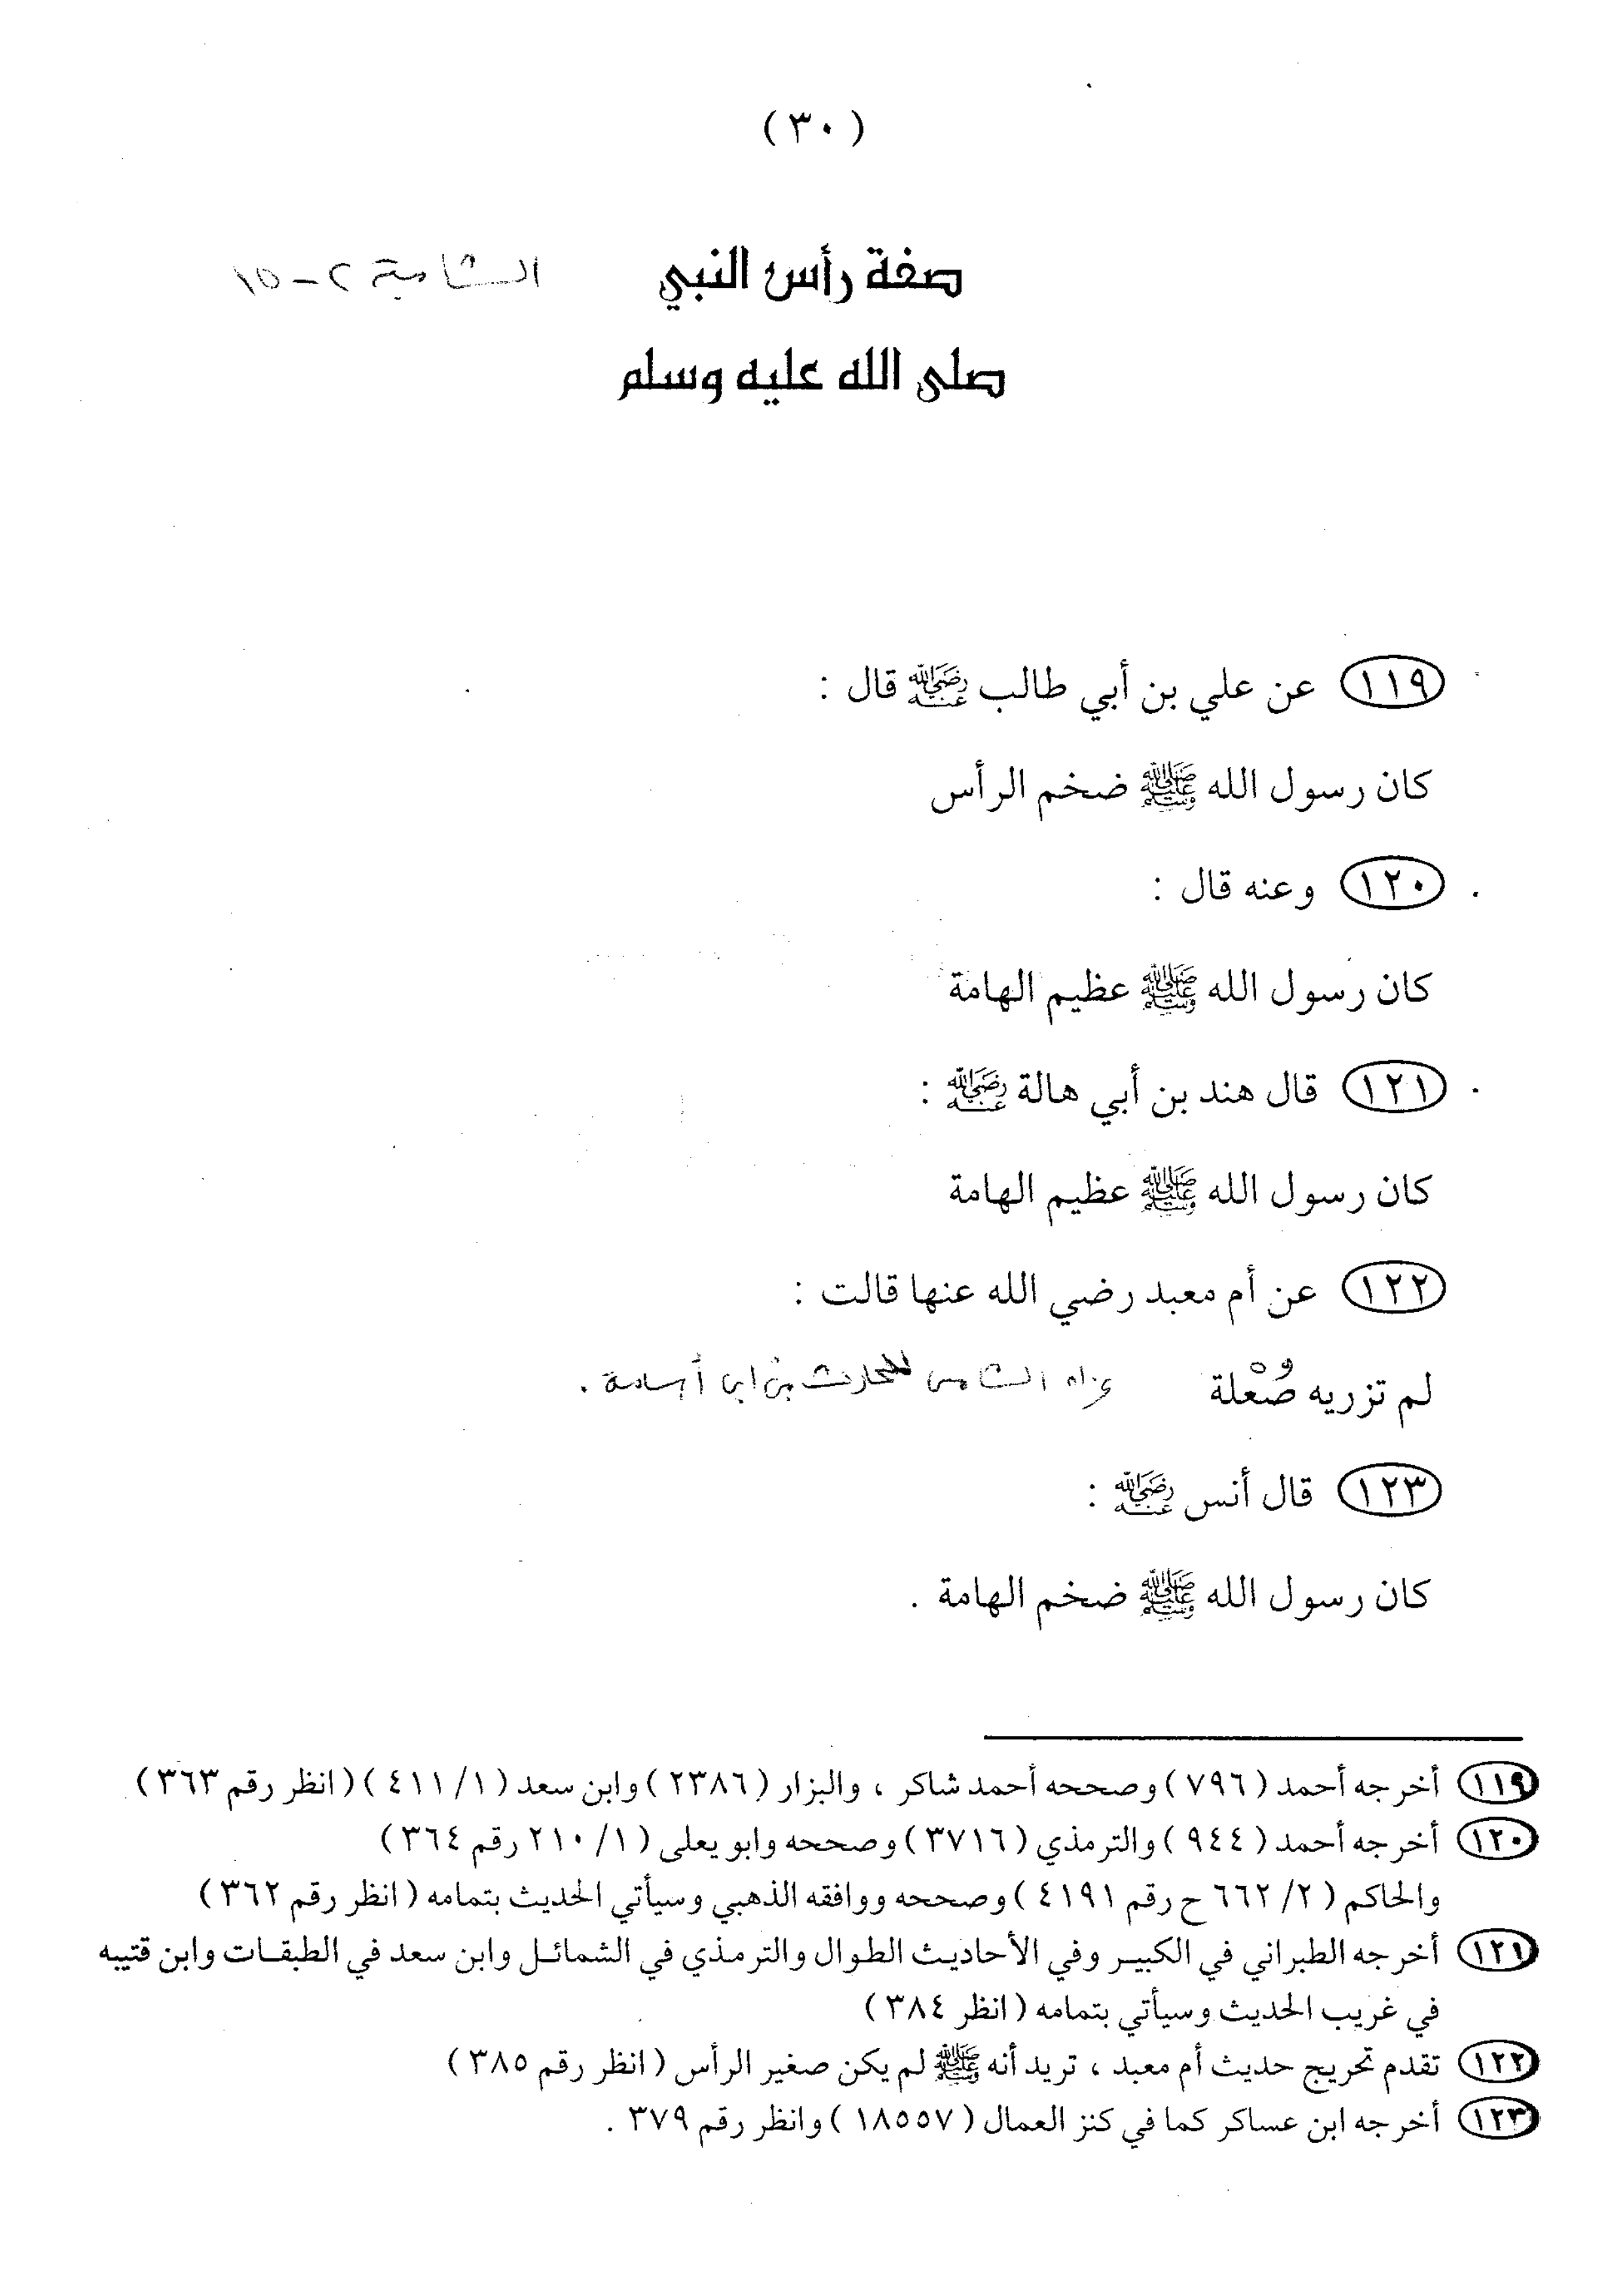 (٣٠)
صفة رأس النبي
الشامية ٢ - ١٥
صلى الله عليه وسلم
١١٩ عن علي بن أبي طالب رضي الله عنه قال :
كان رسول الله ﷺ ضخم الرأس
١٢٠ وعنه قال :
كان رسول الله ﷺ عظيم الهامة
١٢١ قال هند بن أبي هالة رضي الله عنه :
كان رسول الله ﷺ عظيم الهامة
١٢٢ عن أم معبد رضي الله عنها قالت :
لم تزريه صُعْلة
للحارث بن أبي أسامة .
١٢٣ قال أنس رضي الله عنه :
كان رسول الله ﷺ ضخم الهامة .
١١٩ أخرجه أحمد ( ٧٩٦ ) وصححه أحمد شاكر ، والبزار ( ٢٣٨٦ ) وابن سعد ( ١/ ٤١١ ) ( انظر رقم ٣٦٣ )
١٢٠ أخرجه أحمد ( ٩٤٤ ) والترمذي ( ٣٧١٦ ) وصححه وابو يعلى ( ١/ ٢١٠ رقم ٣٦٤ )
والحاكم ( ٢/ ٦٦٢ ح رقم ٤١٩١ ) وصححه ووافقه الذهبي وسيأتي الحديث بتمامه ( انظر رقم ٣٦٢ )
١٢١ أخرجه الطبراني في الكبيـر وفي الأحاديـث الطـوال والترمـذي في الشمائـل وابن سعد في الطبقـات وابن قتيبه
في غريب الحديث وسيأتي بتمامه ( انظر ٣٨٤ )
١٢٢ تقدم تخريج حديث أم معبد ، تريد أنه ﷺ لم يكن صغير الرأس ( انظر رقم ٣٨٥ )
١٢٣ أخرجه ابن عساكر كما في كنز العمال ( ١٨٥٥٧ ) وانظر رقم ٣٧٩ .